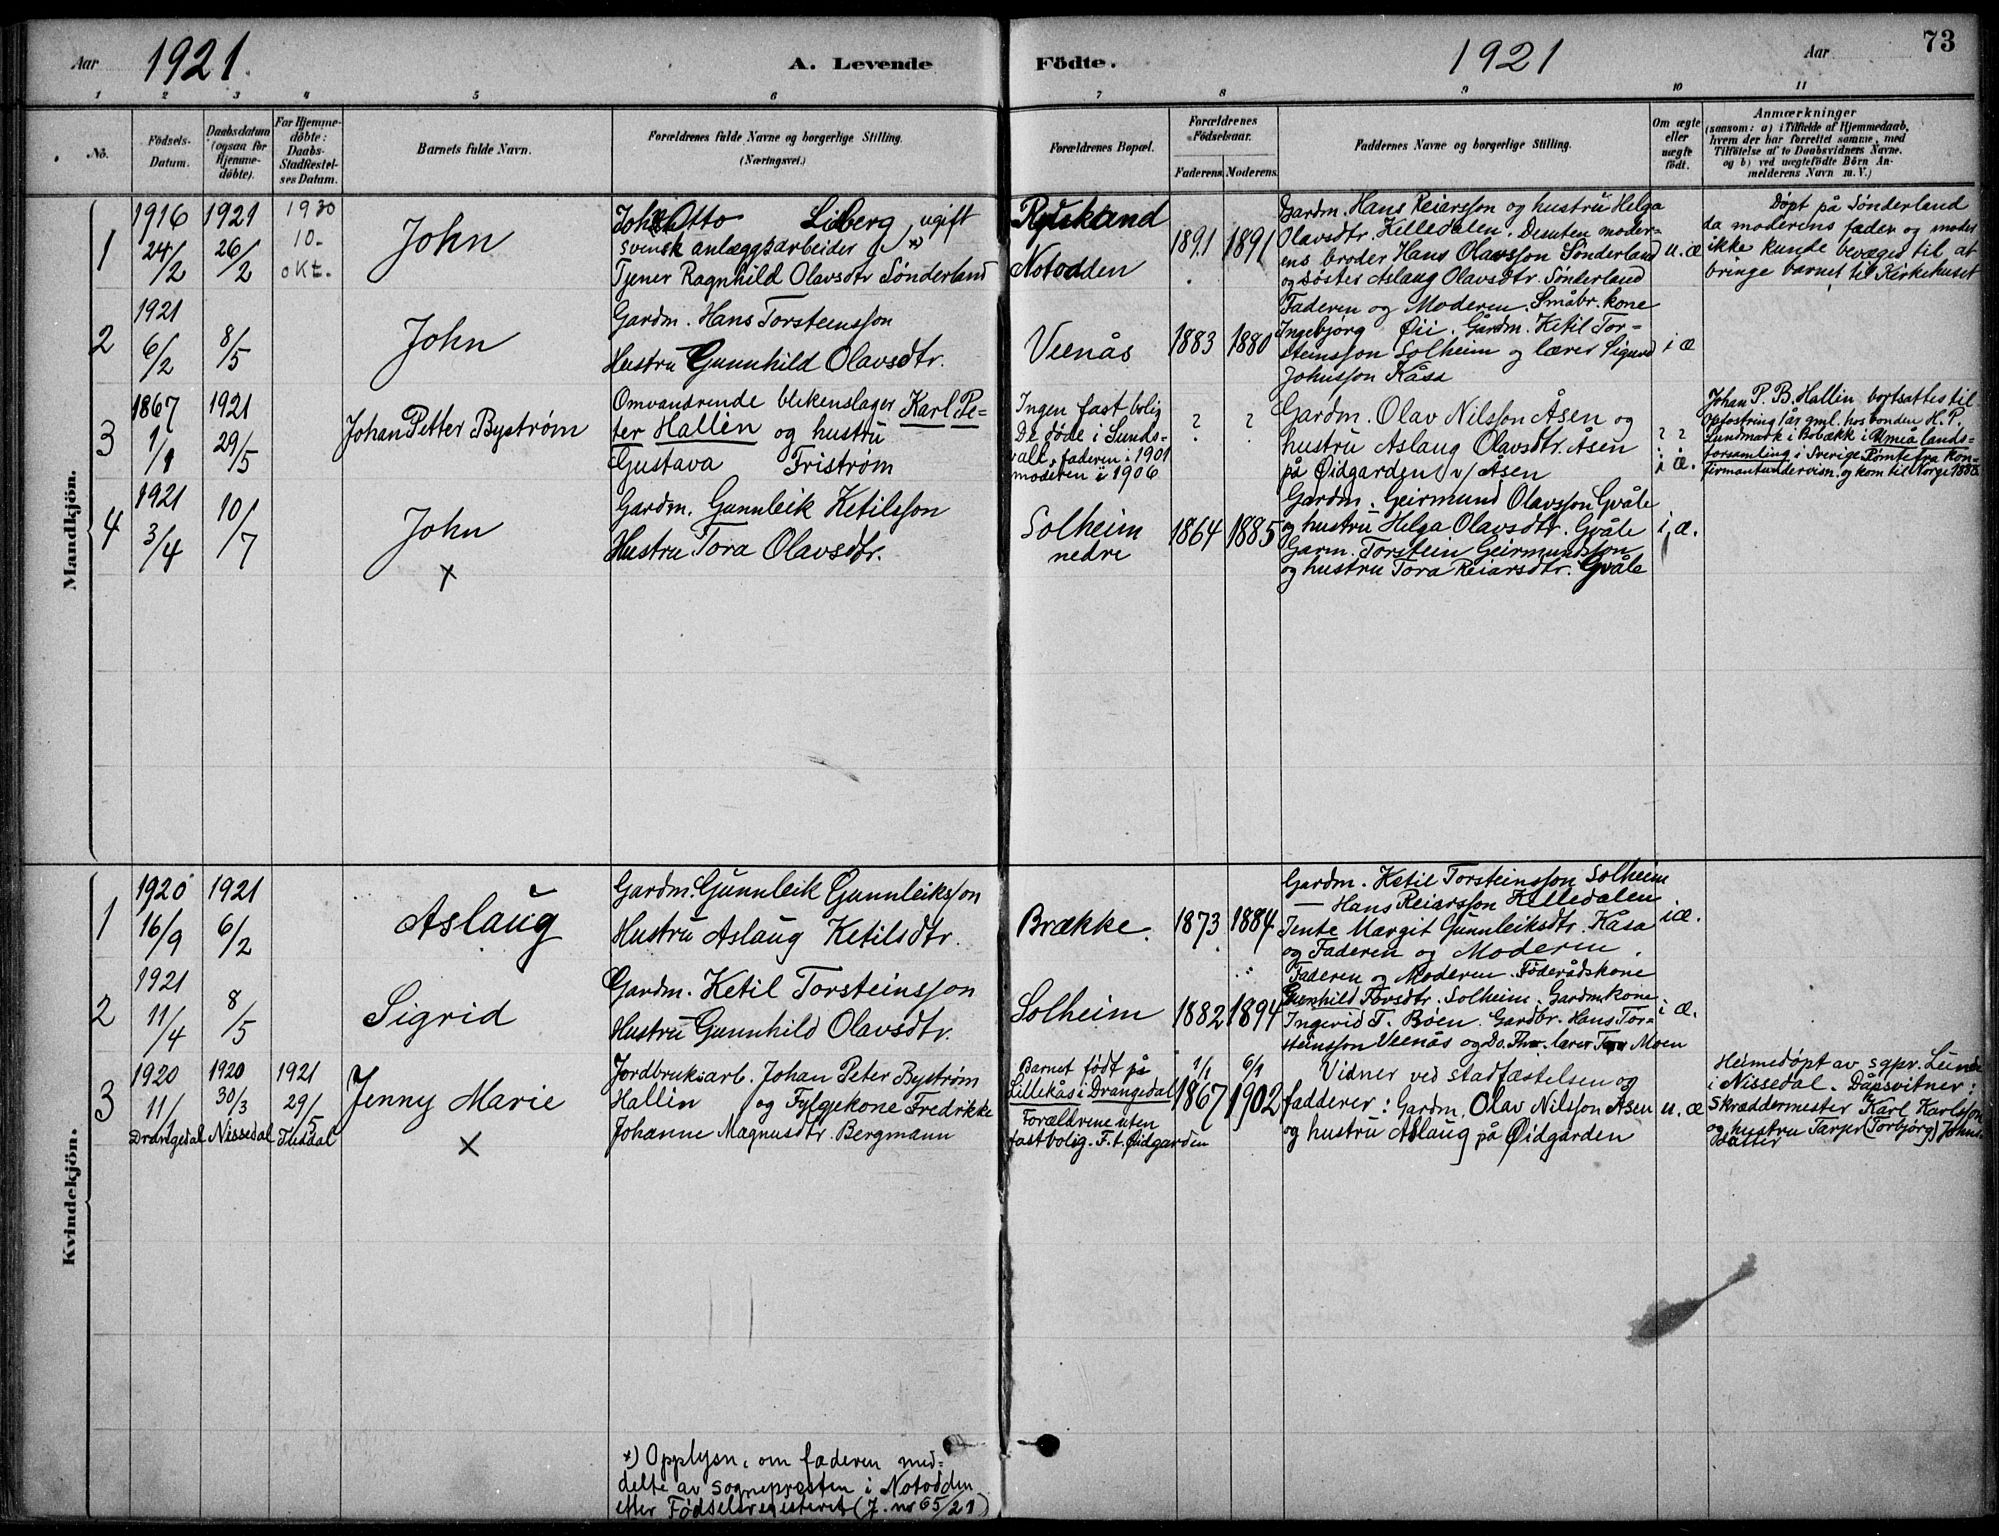 Aar 1921. A. Levende Födte. 1921 Aar 73
1 2 3 4 5 6 7 8 9 10 11
No.
Fødsels-
Datum.
Daabsdatum
(ogsaa for
Hjemme-
døbte).
For Hjemme-
døbte:
Daabs-
Stadfæstel-
ses Datum.
Barnets fulde Navn.
Forældrenes fulde Navne og borgerlige Stilling.
(Næringsvei.)
Forældrenes Bopæl.
Forældrenes
Fødselsaar.
Faderens. Moderens.
Faddernes Navne og borgerlige Stilling.
Om ægte
eller
uægte
født.
Anmærkninger
(saasom: a) i Tilfælde af Hjemmedaab,
hvem der har forrettet samme, med
Tilföielse af to Daabsvidners Navne.
og b) ved uægtefödte Börn An-
melderens Navn m. V.)
Mandkjön.
1
1916
24/2
1921
26/2
1930
10-
okt.
John
Otto Lidberg, ugift
svensk anlægsarbeider *)
Tjener Ragnhild Olavsdtr Sønderland
Notodden
1891 1891
Gardm. Hans Reiarsson og hustru Helga
Olavsdtr. Killedalen. Desuten moder-
ens broder Hans Olavsson Sønderland
og søster Aslaug Olavsdtr. Sønderland
u. æ
Døpt på Sønderland
da moderens fader og moder
ikke kunde bevæges til at
bringe barnet til Kirkehuset
2
1921
6/2
8/5
John
Gardm. Hans Torsteinsson
Hustru Gunnhild Olavsdtr.
Veenås
1883 1880
Faderen og Moderen. Småbr. kone
Ingebjørg Øii. Gårdm. Ketil Tor-
steinsson Solheim og lærer Sigurd
Johnsson Kåsa
i æ
3
1867
1/1
1921
29/5
Johan Petter Byström
Omvandrende blikenslager Karl Pe-
ter Hallin og hustru
Gustava Friström
Ingen fast bolig
De døde i Sunds-
vall, faderen i 1901
moderen i 1906
? ?
Gardm. Olav Nilsson Åsen og
hustru Aslaug Olavsdtr. Åsen
på Øidgarden v/ Åsen
? ?
i æ.
Johan P. B. Hallin bortsattes til
opfostring 1 år gml. hos bonden H. P.
Lundmark i Bobækk i Umeå lands-
forsamling i Sverige. Rømte fra kon-
firmantundervisn. og kom til Norge 1885
4
1921
3/4
10/7
John
×
Gardm. Gunnleik Ketilsson
Hustru Tora Olavsdtr.
Solheim
nedre
1864 1885
Gardm. Geirmund Olavsson Gvåle
og hustru Helga Olavsdtr. Gvåle
Garm. Torstein Geirmundsson
og hustru Tora Reiarsdtr. Gvåle
i, æ.
Kvindekjön.
1
1920
16/9
1921
6/2
Aslaug
Gardm. Gunnleik Gunnleiksson
Hustru Aslaug Ketilsdtr.
Brække.
1873 1884
Gardm. Ketil Torsteinsson Solheim
— Hans Reiarsson Killedalen
Jente Margit Gunnleiksdtr. Kåsa
og Faderen og Moderen.
i æ.
2
1921
11/4
8/5
Sigrid
Gardm. Ketil Torsteinsson
Hustru Gunnhild Olavsdtr.
Solheim
1882 1894
Faderen og Moderen. Föderådskone
Gunhild Torsdtr. Solheim. Gardmkone
Ingerid T. Bøen. Gardbr. Hans Tor-
steinsson Veenås og lærer Moen
i æ.
3
1920
11/1
Drangedal
1920
30/3
Nissedal
1921
29/5
Tuddal
Jenny Marie
×
Jordbruksarb. Johan Peter Byström
Hallin og Fylgjekone Fredrikke
Johanne Magnusdtr. Bergmann
Barnet født på
Lillekås i Drangedal
Forældrene uten
fast bolig. F. t. Øidgarden
1/1 6/1
1867 1902
Vidner ved stadfæstelsen og
fadderer: Gardm. Olav Nilsson Åsen
og hustru Aslaug på Øidgården
u. æ
Heimedøpt av sgpr. Leinæs
i Nissedal. Dåpsvitner:
Skræddermester Karl Karlsson
og hustru (Torbjørg) Johns-
datter
*) Opplysn. om faderen med-
delte av sognepresten i Notodden
efter Fødselsregisteret (J. nr 65/21)